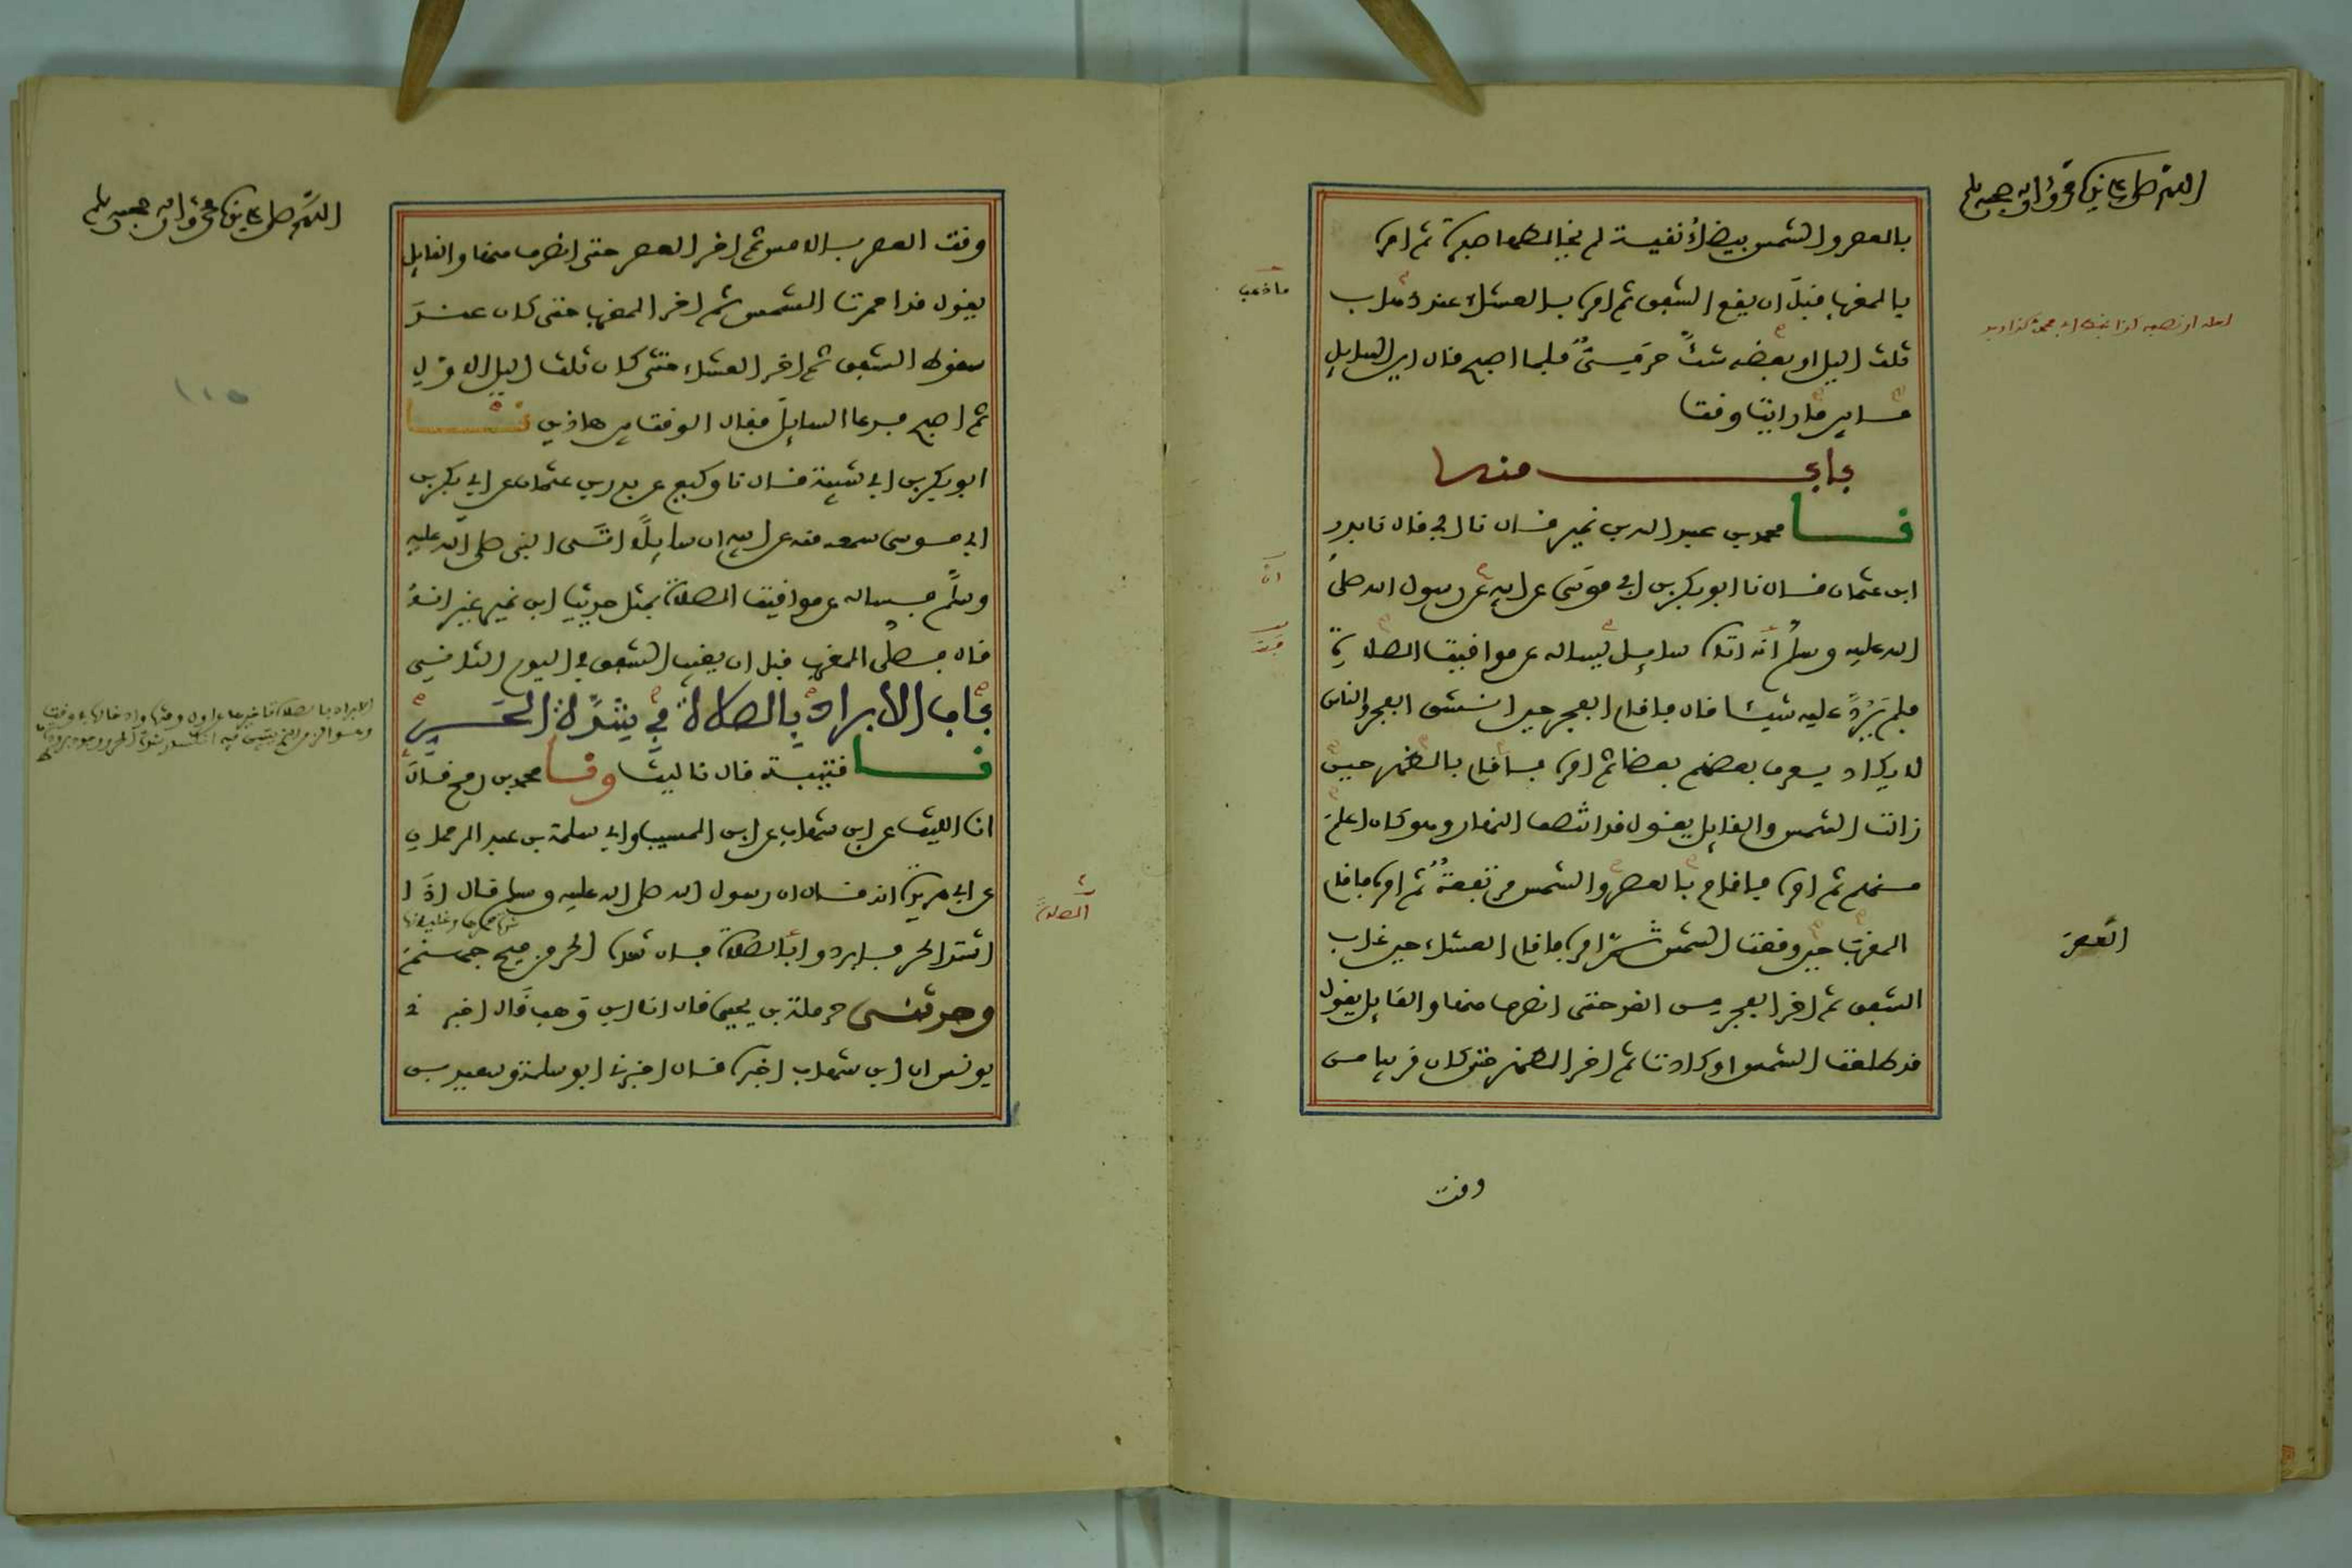 اللهم صل على نبيك محمد وءاله وصحبه وسلم
بالعصر والشمس بيضاء نقية لم يخالطها صفرة ثم امره
ما ذهب
بالمغرب قبل ان يقع الشفق ثم امره بالعشاء عند ذهاب
ثلث اليل او بعضه شك حرمي فلما اصبح قال اين السايل
ما بين ما رايت وقت
باب منه
نا محمد بن عبد الله بن نمير قال نا ابي قال نا بدر
ابن عثمان قال نا ابو بكر بن ابي موسى عن ابيه عن رسول الله صلى
الله عليه وسلم انه اتاه سايل يساله عن مواقيت الصلاة
فلم يرد عليه شيئا قال فاقام الفجر حين انشق الفجر والناس
لا يكاد يعرف بعضهم بعضا ثم امره فاقام بالظهر حين
زالت الشمس والقايل يقول قد انتصف النهار وهو كان اعلم
منهم ثم امره فاقام بالعصر والشمس مرتفعة ثم امره فاقام
المغرب حين وقعت الشمس ثم امره فاقام العشاء حين غاب
الشفق ثم اخر الفجر من الغد حتى انصرف منها والقايل يقول
قد طلعت الشمس او كادت ثم اخر الظهر حتى كان قريبا من
العصر
وقت
اللهم صل على نبيك محمد وءاله وصحبه وسلم
وقت العصر بالامس ثم اخر العصر حتى انصرف منها والقايل
يقول قد احمرت الشمس ثم اخر المغرب حتى كان عند
سقوط الشفق ثم اخر العشاء حتى كان ثلث اليل الاول
ثم اصبح فدعا السايل فقال الوقت بين هاذين نا
ابو بكر بن ابي شيبة قال نا وكيع عن بدر بن عثمان عن ابي بكر بن
ابي موسى سمعه منه عن ابيه ان سايلا اتى النبي صلى الله عليه
وسلم فساله عن مواقيت الصلاة بمثل حديث ابن نمير غير انه
قال فصلى المغرب قبل ان يغيب الشفق في اليوم الثاني
باب الابراد بالصلاة في شدة الحر
نا قتيبة قال نا ليث ونا محمد بن رمح قال
انا الليث عن ابن شهاب عن ابن المسيب وابي سلمة بن عبد الرحمان
عن ابي هريرة انه قال ان رسول الله صلى الله عليه وسلم قال اذا
اشتد الحر فابردوا بالصلاة فان شدة الحر من فيح جهنم
وحدثني حرملة بن يحيى قال انا ابن وهب قال اخبرني
يونس ان ابن شهاب اخبره قال اخبرني ابو سلمة وسعيد بن
الصلاة
١١٥